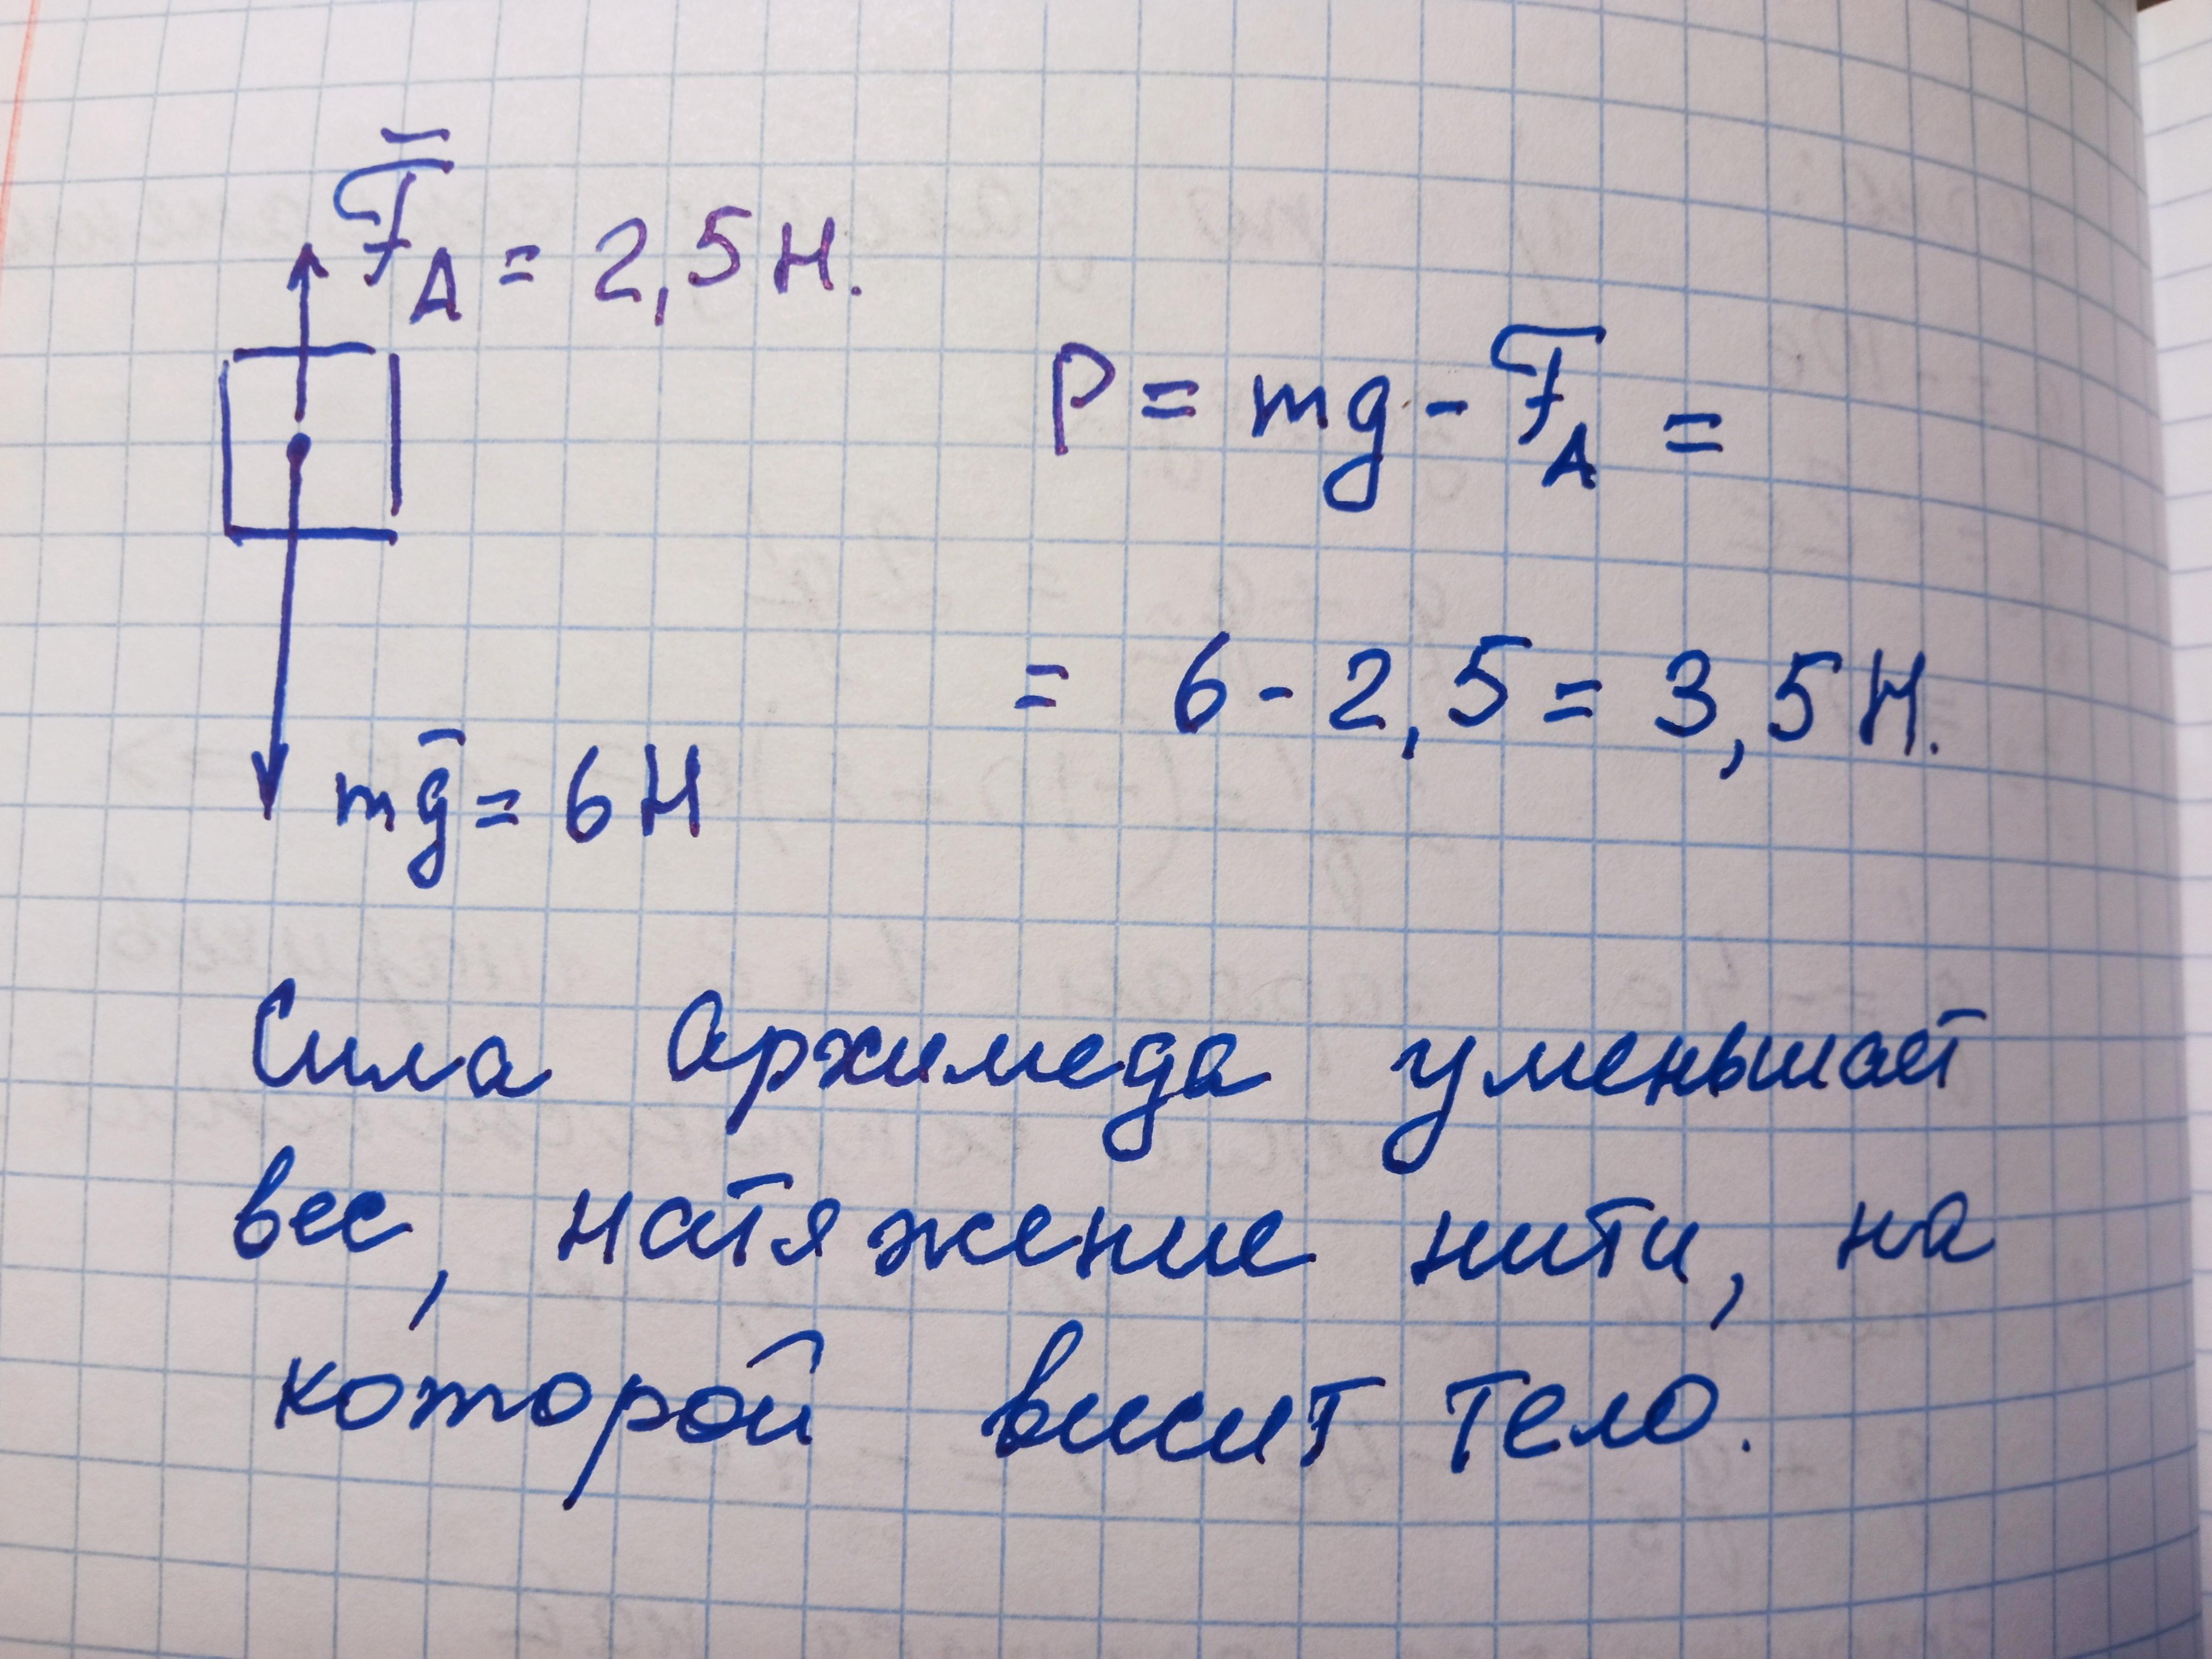 F̄_A = 2,5 Н.
P = mg - F_A =
= 6 - 2,5 = 3,5 Н.
mḡ = 6 Н
Сила Архимеда уменьшает
вес, натяжение нити, на
которой висит тело.